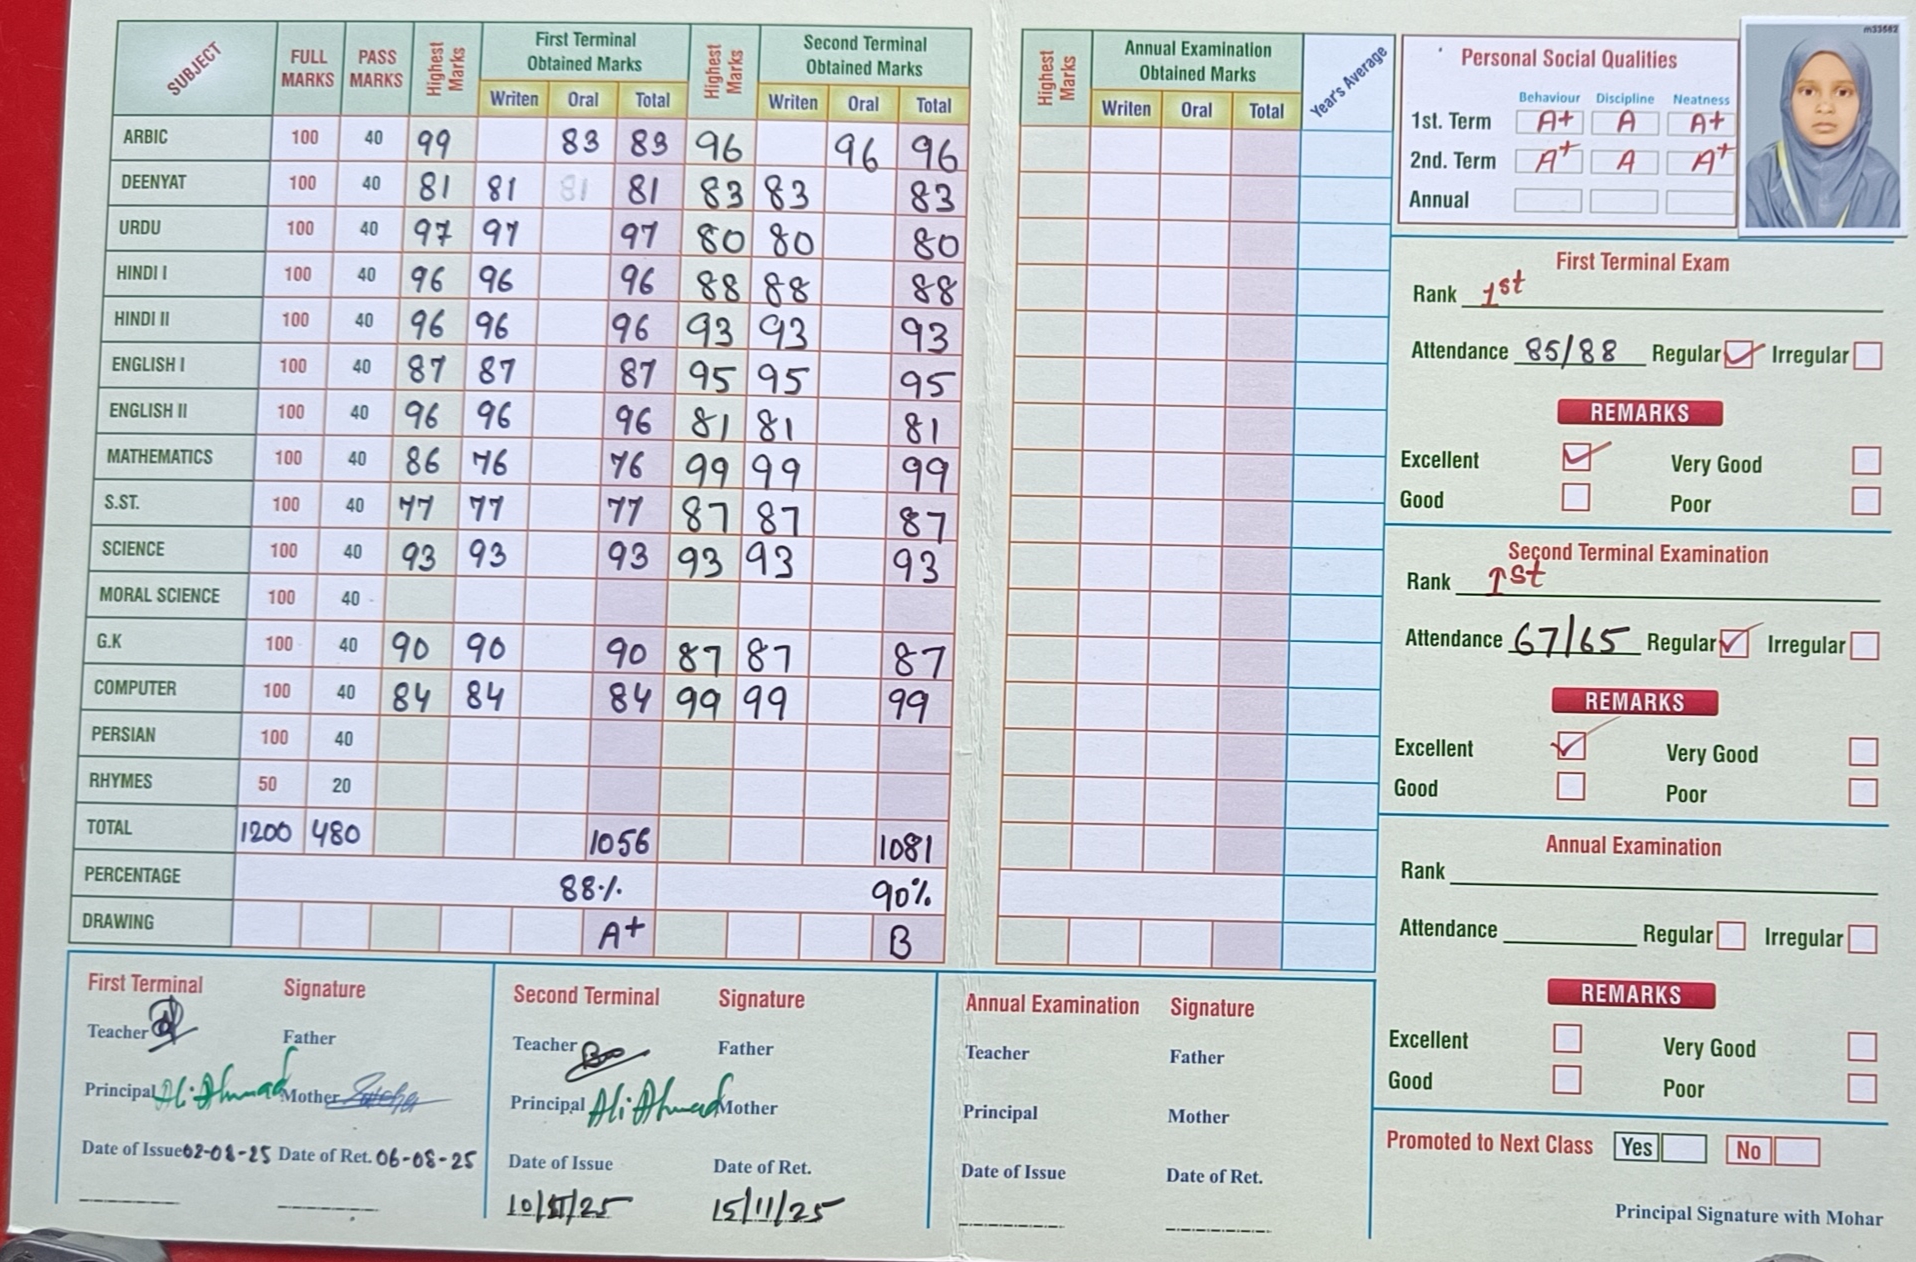 SUBJECT FULL MARKS PASS MARKS Highest Marks First Terminal Obtained Marks Highest Marks Second Terminal Obtained Marks
Writen Oral Total Writen Oral Total
ARBIC 100 40 99 83 83 96 96 96
DEENYAT 100 40 81 81 81 81 83 83 83
URDU 100 40 97 97 97 80 80 80
HINDI I 100 40 96 96 96 88 88 88
HINDI II 100 40 96 96 96 93 93 93
ENGLISH I 100 40 87 87 87 95 95 95
ENGLISH II 100 40 96 96 96 81 81 81
MATHEMATICS 100 40 86 76 76 99 99 99
S.ST. 100 40 77 77 77 87 87 87
SCIENCE 100 40 93 93 93 93 93 93
MORAL SCIENCE 100 40
G.K 100 40 90 90 90 87 87 87
COMPUTER 100 40 84 84 84 99 99 99
PERSIAN 100 40
RHYMES 50 20
TOTAL 1200 480 1056 1081
PERCENTAGE 88% 90%
DRAWING A+ B
Highest Marks Annual Examination Obtained Marks Year's Average
Writen Oral Total
Personal Social Qualities
Behaviour Discipline Neatness
1st. Term A+ A A+
2nd. Term A+ A A+
Annual
m33662
First Terminal Exam
Rank 1st
Attendance 85/88 Regular Irregular
REMARKS
Excellent Very Good
Good Poor
Second Terminal Examination
Rank 1st
Attendance 67/65 Regular Irregular
REMARKS
Excellent Very Good
Good Poor
Annual Examination
Rank
Attendance Regular Irregular
REMARKS
Excellent Very Good
Good Poor
Promoted to Next Class Yes No
Principal Signature with Mohar
First Terminal Signature
Teacher Father
Principal Ali Ahmad Mother
Date of Issue 02-08-25 Date of Ret. 06-08-25
Second Terminal Signature
Teacher Father
Principal Ali Ahmad Mother
Date of Issue Date of Ret.
15/11/25
Annual Examination Signature
Teacher Father
Principal Mother
Date of Issue Date of Ret.